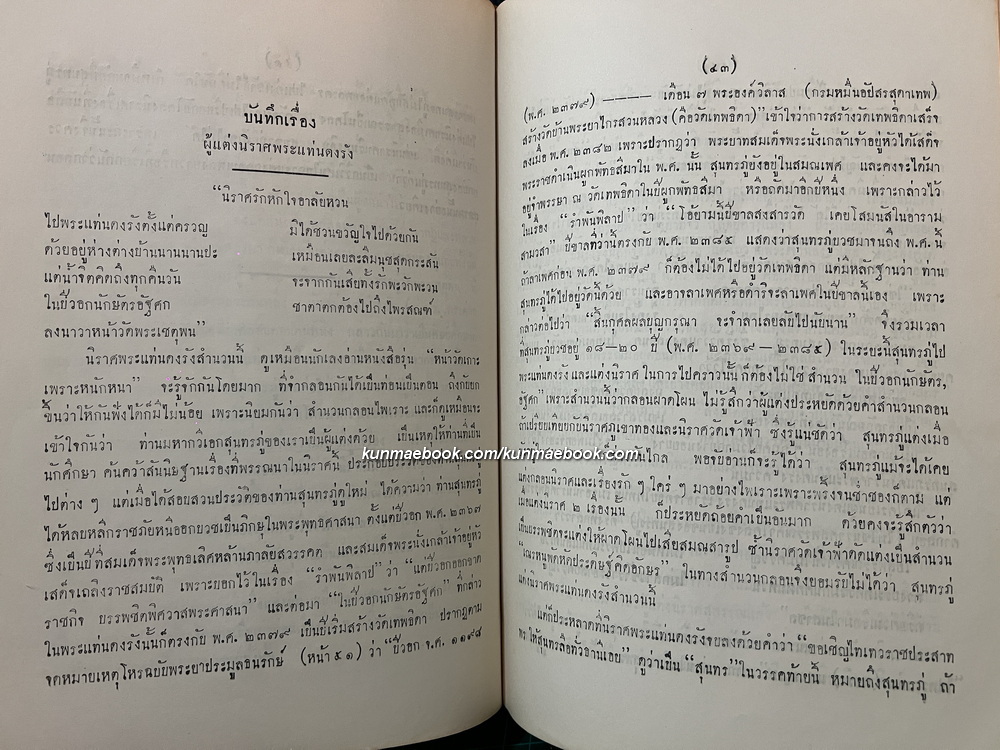 บันทึกเรื่อง
ผู้แต่งนิราศพระแท่นดงรัง
“นิราศรักหักใจอาลัยหวน
ไปพระแท่นดงรังตั้งแต่ครวญ มิได้ชวนขวัญใจไปด้วยกัน
ด้วยอยู่ห่างต่างบ้านนานนานปะ เหมือนเลยละลืมนุชสุดกระสัน
แต่น้ำจิตคิดถึงทุกคืนวัน จะจากกันเสียทั้งรักพะวักพะวน
ในปีวอกนักษัตรอัฐศก ชาตาตกต้องไปถึงไพรสณฑ์
ลงนาวาหน้าวัดพระเชตุพน”
นิราศพระแท่นดงรังสำนวนนี้ ดูเหมือนนักเลงอ่านหนังสือรุ่น “หน้าวัดเกาะ
เพราะหนักหนา” จะรู้จักกันโดยมาก ที่จำกลอนกันได้เป็นท่อนเป็นตอน ถึงกับยก
ขึ้นว่าให้กันฟังได้ก็มีไม่น้อย เพราะนิยมกันว่า สำนวนกลอนไพเราะ และก็ดูเหมือนจะ
เข้าใจกันว่า ท่านมหากวีเอกสุนทรภู่ของเราเป็นผู้แต่งด้วย เป็นเหตุให้ท่านที่เป็น
นักศึกษา ค้นคว้าสันนิษฐานเรื่องที่พรรณนาในนิราศนี้ ประกอบประวัติของท่านสุนทรภู่
ไปต่าง ๆ แต่เมื่อได้สอบสวนประวัติของท่านสุนทรภู่ดูใหม่ ได้ความว่า ท่านสุนทรภู่
ได้หลบหลีกราชภัยหนีออกบวชเป็นภิกษุในพระพุทธศาสนา ตั้งแต่ปีวอก พ.ศ. ๒๓๖๗
ซึ่งเป็นปีที่สมเด็จพระพุทธเลิศหล้านภาลัยสวรรคต และสมเด็จพระนั่งเกล้าเจ้าอยู่หัว
เสด็จเถลิงราชสมบัติ เพราะบอกไว้ในเรื่อง “รำพันพิลาป” ว่า “แต่ปีวอกออกขาด
ราชกิจ บรรพชิตพิศวาสพระศาสนา” และต่อมา “ในปีวอกนักษัตรอัฐศก” ที่กล่าว
ในพระแท่นดงรังนั้นก็ตรงกับ พ.ศ. ๒๓๗๙ เป็นปีเริ่มสร้างวัดเทพธิดา ปรากฏตาม
จดหมายเหตุโหรฉบับพระยาประมูลธนรักษ์ (หน้า ๕๑) ว่า “ปีวอก จ.ศ. ๑๑๙๘
(๔๓)
(พ.ศ. ๒๓๗๙) ——— เดือน ๗ พระองค์วิลาส (กรมหมื่นอัปสรสุดาเทพ)
สร้างวัดบ้านพระยาไกรสวนหลวง (คือวัดเทพธิดา)” เข้าใจว่าการสร้างวัดเทพธิดาเสร็จ
ลงเมื่อ พ.ศ. ๒๓๘๒ เพราะปรากฏว่า พระบาทสมเด็จพระนั่งเกล้าเจ้าอยู่หัวได้เสด็จ
พระราชดำเนินผูกพัทธสีมาใน พ.ศ. นั้น สุนทรภู่ยังอยู่ในสมณเพศ และคงจะได้มา
อยู่จำพรรษา ณ วัดเทพธิดาในปีผูกพัทธสีมา หรือถัดมาอีกปีหนึ่ง เพราะกล่าวไว้
ในเรื่อง “รำพันพิลาป” ว่า “โอ้ยามนี้ปีขาลสงสารวัด เคยโสมนัสในอาราม
สามวสา” ปีขาลที่ว่านี้ตรงกับ พ.ศ. ๒๓๘๕ แสดงว่าสุนทรภู่บวชมาจนถึง พ.ศ. นี้
ถ้าลาเพศก่อน พ.ศ. ๒๓๗๙ ก็ต้องไม่ได้ไปอยู่วัดเทพธิดา แต่มีหลักฐานว่า ท่าน
สุนทรภู่ได้ไปอยู่วัดนี้ด้วย และอาจลาเพศหรือดำริจะลาเพศในปีขาลนี้เอง เพราะ
กล่าวต่อไปว่า “สิ้นกุศลผลบุญการุณา จะจำลาเลยลับไปนับนาน” จึงรวมเวลา
ที่สุนทรภู่บวชอยู่ ๑๘–๒๐ ปี (พ.ศ. ๒๓๖๙ – ๒๓๘๕) ในระยะนี้สุนทรภู่ไป
พระแท่นดงรัง และแต่งนิราศ ในการไปคราวนั้น ก็ต้องไม่ใช่ สำนวน ในปีวอกนักษัตร,
อัฐศก” เพราะสำนวนนี้ว่ากลอนผาดโผน ไม่รู้สึกว่าผู้แต่งประหยัดด้วยคำสำนวนกลอน
ถ้าเปรียบเทียบกับนิราศภูเขาทองและนิราศวัดเจ้าฟ้า ซึ่งรู้แน่ชัดว่า สุนทรภู่แต่งเมื่อ
ไกล พอจับอ่านก็จะรู้ได้ว่า สุนทรภู่แม้จะได้เคย
แต่งกลอนนิราศและเรื่องรัก ๆ ใคร่ ๆ มาอย่างไพเราะเพราะพริ้งจนช่ำชองก็ตาม แต่
เมื่อแต่งนิราศ ๒ เรื่องนั้น ก็ประหยัดถ้อยคำเป็นอันมาก ด้วยคงจะรู้สึกตัวว่า
เป็นบรรพชิตจะแต่งให้ผาดโผนไปเสียสมณสารูป ซ้ำนิราศวัดเจ้าฟ้าดัดแต่งเป็นสำนวน
“เณรหนูพัดหัดประดิษฐ์คิดอักษร” ในทางสำนวนกลอนจึงยอมรับไม่ได้ว่า สุนทรภู่
แต่งนิราศพระแท่นดงรังสำนวนนี้
แต่ก็ประหลาดที่นิราศพระแท่นดงรังจบลงด้วยคำว่า “ขอเชิญไทเทวราชประสาท
พร ให้สุนทรลือทั่วอ่านเอย” ดูว่าเป็น “สุนทร” ในวรรคท้ายนี้ หมายถึงสุนทรภู่ ถ้า
kunmaebook.com/kunmaebook.com